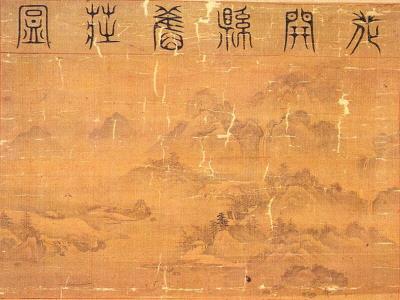 花開縣舊莊圖